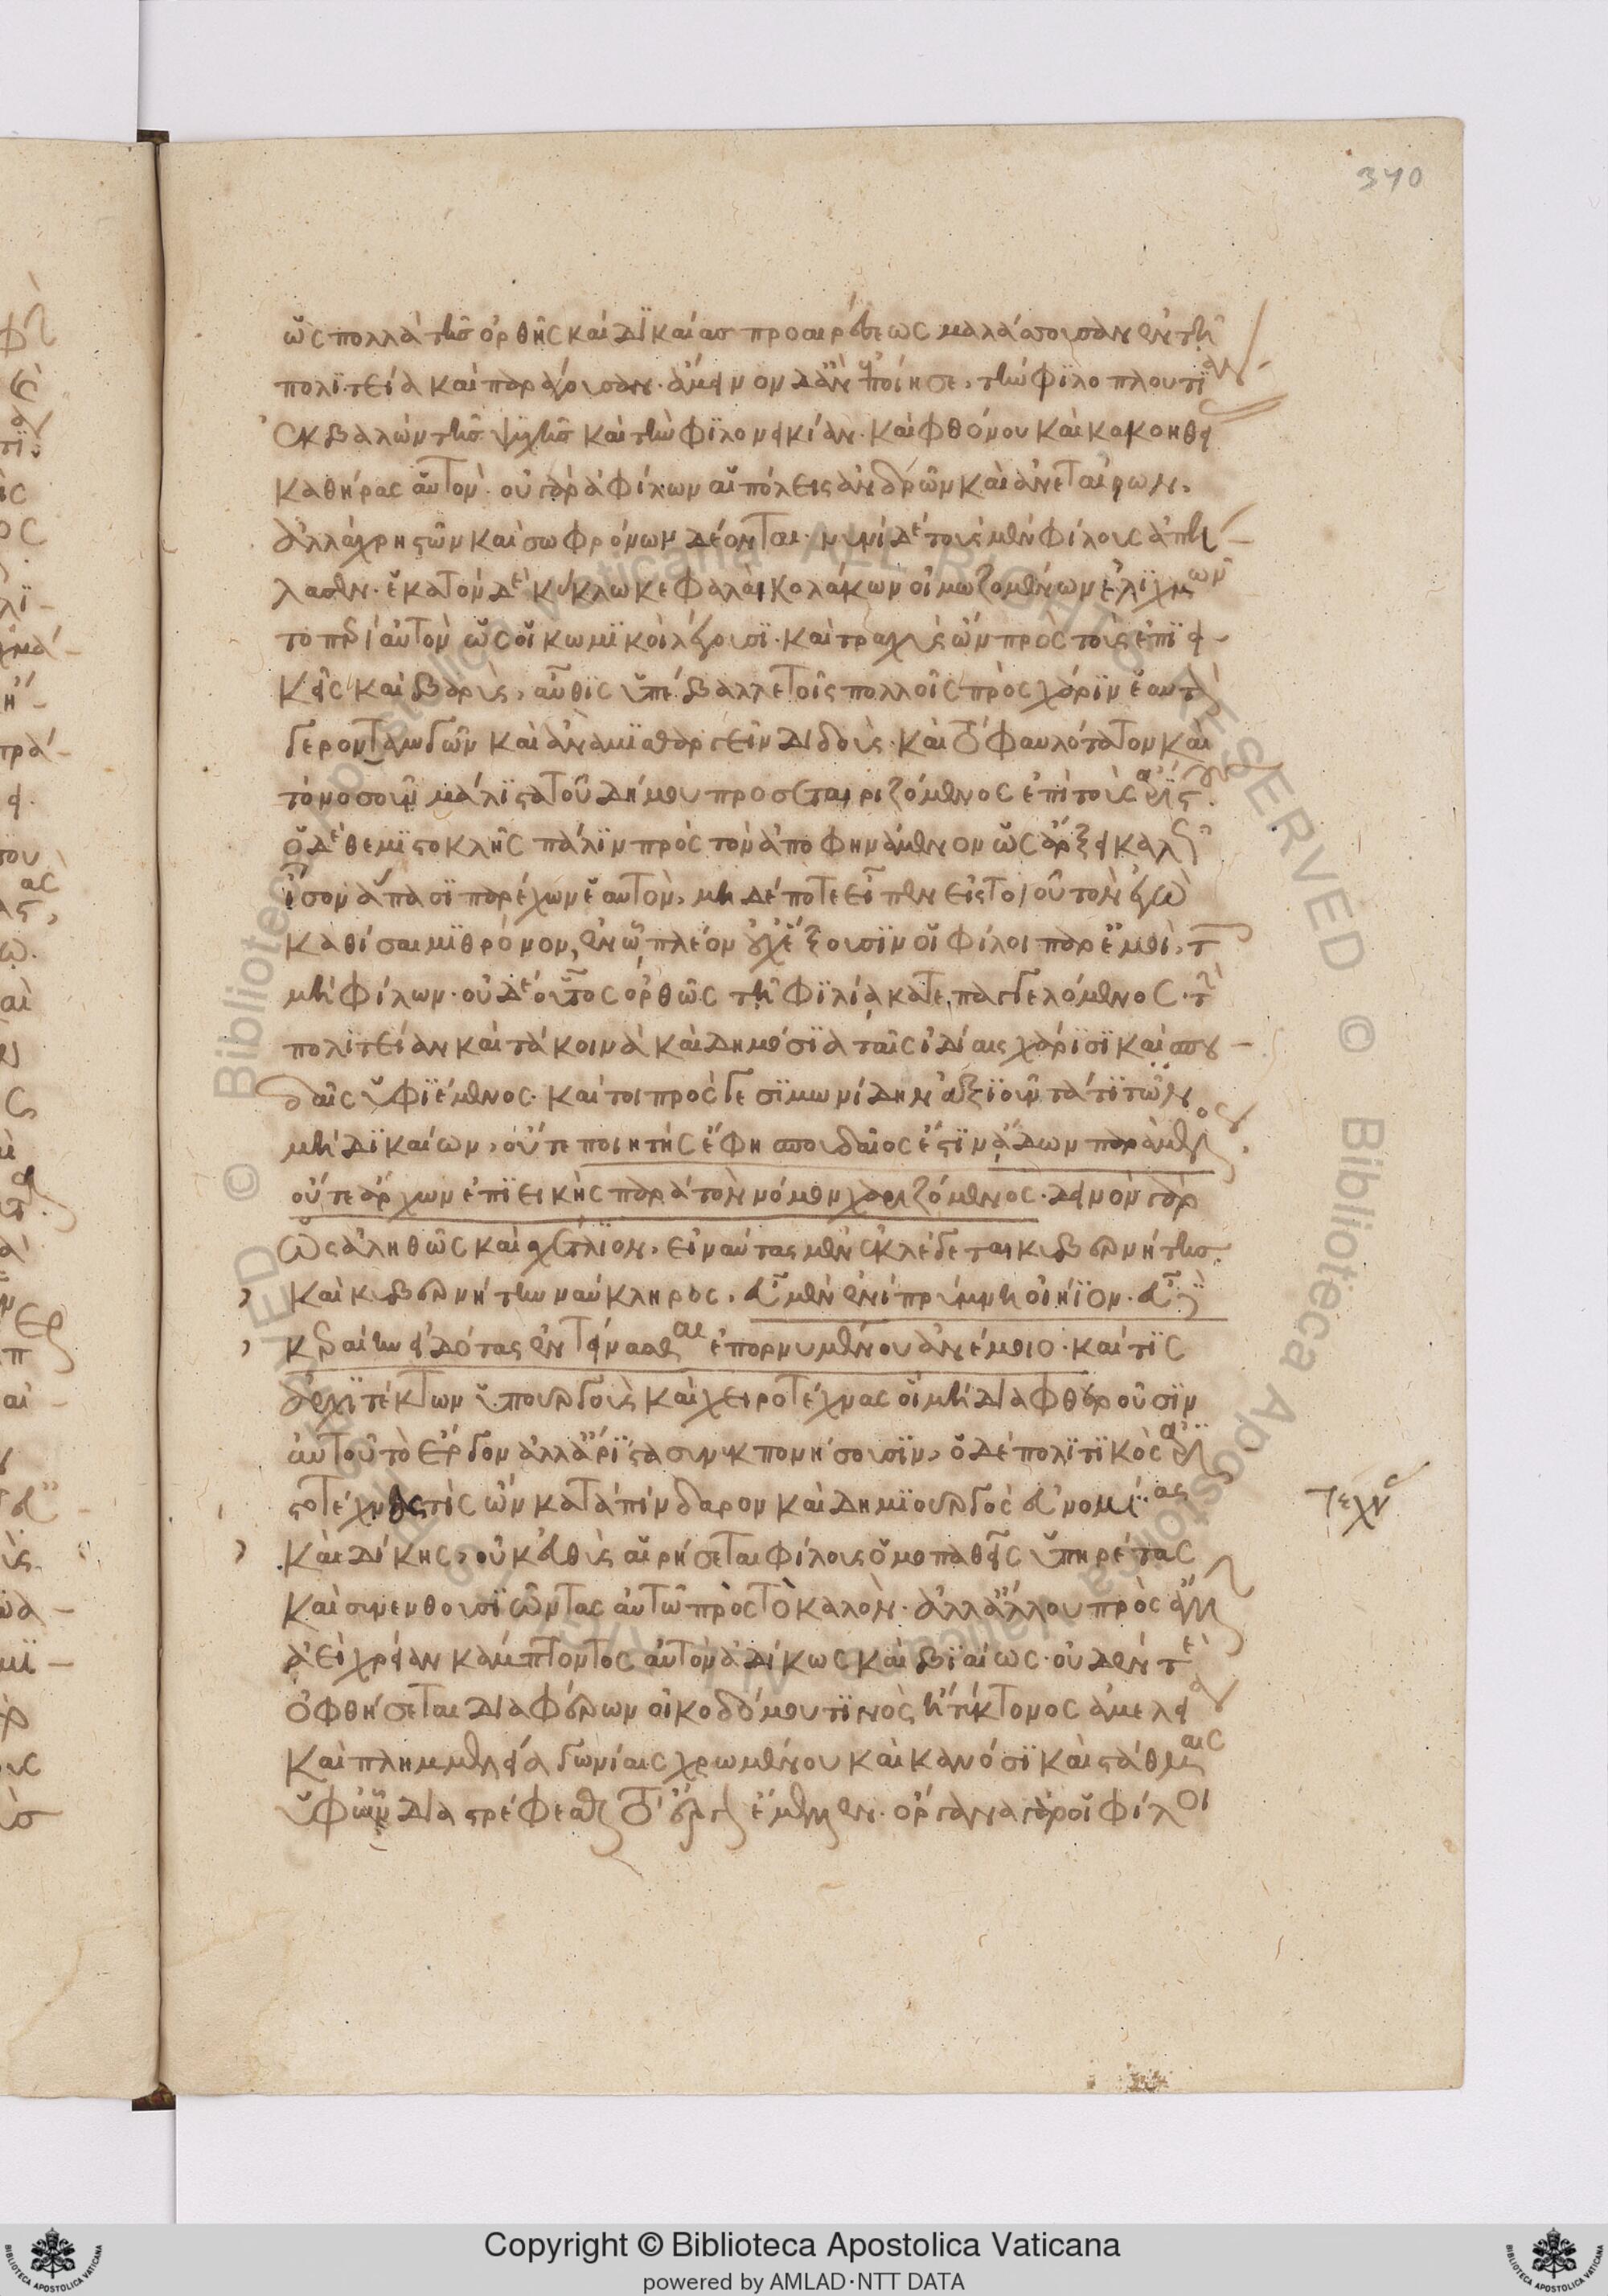 340
ὡς πολλὰ τῆς ὀρθῆς καὶ δικαίας προαιρέσεως μαλάσσουσαν ἐν τῇ
πολιτεία καὶ παράγουσαν. ἄμεινον δ' ἂν ἐποίησε, τὴν φιλοπλουτίαν
ἐκβαλὼν τῆς ψυχῆς καὶ τὴν φιλονεικίαν. καὶ φθόνου καὶ κακοηθείας
καθήρας αὑτόν. οὐ γὰρ ἀφίλων αἱ πόλεις ἀνδρῶν καὶ ἀνεταίρων,
ἀλλὰ χρηστῶν καὶ σωφρόνων δέονται. νυνὶ δὲ τοὺς μὲν φίλους ἀπή-
λασεν. ἑκατὸν δὲ κύκλω κεφαλαὶ κολάκων οἰμωζομένων ἐλιχμῶν
το περὶ αὐτὸν ὡς οἱ κωμικοὶ λέγουσι. καὶ τραχὺς ὢν πρὸς τοὺς ἐπιει-
κεῖς καὶ βαρὺς, αὖθις ὑπέβαλλε τοῖς πολλοῖς πρὸς χάριν ἑαυτὸν
γερονταγωγῶν καὶ ἀναμισθαρνεῖν διδοὺς. καὶ τὸ φαυλότατον καὶ
τὸ νοσοῦν μάλιστα τοῦ δήμου προσεταιριζόμενος ἐπὶ τοὺς ἀρίστους.
ὁ δὲ θεμιστοκλῆς πάλιν πρὸς τὸν ἀποφηνάμενον ὡς ἄρξει καλῶς
ἴσον ἅπασι παρέχων ἑαυτὸν, μηδέποτε εἶπεν εἰς τοιοῦτον ἐγὼ
καθίσαιμι θρόνον, ἐν ᾧ πλέον οὐχ ἕξουσιν οἱ φίλοι παρ' ἐμοὶ, τῶν
μὴ φίλων. οὐδὲ οὗτος ὀρθῶς τῇ φιλία κατεπαγγελόμενος. τὴν
πολιτείαν καὶ τὰ κοινὰ καὶ δημόσια ταῖς ἰδίαις χάρισι καὶ σπου-
δαῖς ὑφιέμενος. καίτοι πρός γε σιμωνίδην ἀξιοῦντά τι τῶν
μὴ δικαίων, οὔτε ποιητής ἔφη σπουδαῖος ἐστιν ᾄδων παρὰ μέλος,
οὔτε ἄρχων ἐπιεικὴς παρὰ τὸν νόμον χαριζόμενος. δεινὸν γὰρ
ὡς ἀληθῶς καὶ σχέτλιον, εἰ ναύτας μὲν ἐκλέγεται κυβερνήτης
καὶ κυβερνήτην ναύκληρος. εὖ μὲν ἐνὶ πρύμνη οἰήϊον. εὖ δὲ
κεραίην εἰδότας ἐντείνασθαι ἐπορνυμένου ἀνέμοιο. καί τις
ἀρχιτέκτων ὑπουργοὺς καὶ χειροτέχνας οἳ μὴ διαφθεροῦσιν
αὐτοῦ τὸ ἔργον ἀλλ' ἄριστα συνεκπονήσουσιν, ὁ δὲ πολιτικὸς ἀρι
στοτέχνας τὶς ὢν κατὰ πίνδαρον καὶ δημιουργὸς εὐνομίας
τεχν
καὶ δίκης, οὐκ εὐθὺς αἱρήσεται φίλους ὁμοπαθεῖς ὑπηρέτας
καὶ συνενθουσιῶντας αὐτῶ πρὸς τὸ καλὸν. ἀλλ' ἄλλου πρὸς ἄλλην
ἀεὶ χρείαν κάμπτοντος αὐτὸν ἀδίκως καὶ βιαίως. οὐδέν τε
ὀφθήσεται διαφέρων οἰκοδόμου τινὸς ἢ τέκτονος ἀμελείαν
καὶ πλημμελεία γωνίαις χρωμένου καὶ κανόσι καὶ στάθμαις
ὑφ' ὧν διαστρέφεσθαι τὸ ἔργον ἔμελλεν. ὄργανα γὰρ οἱ φίλοι
Copyright © Biblioteca Apostolica Vaticana
powered by AMLAD·NTT DATA